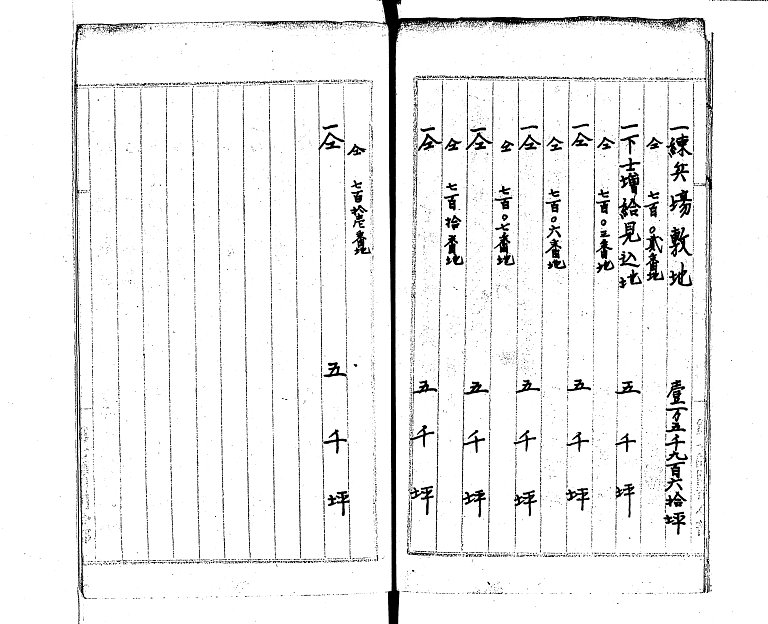 一練兵場敷地　壹万五千九百六拾坪
仝　七百〇貳番地
一下士増給見込地　五千坪
仝　七百〇三番地
一仝　五千坪
仝　七百〇六番地
一仝　五千坪
仝　七百〇七番地
一仝　五千坪
仝　七百拾番地
一仝　五千坪
仝　七百拾壱番地
一仝　五千坪